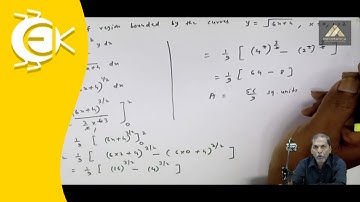 of region bounded by the curves y = √(6x+4) , x =
y dx
x+4 dx
)^(1/2) dx
(6x+4)^(3/2) ]₀²
3/2 × 6 3
1/9 [ (6x+4)^(3/2) ]₀²
1/9 [ (6×2+4)^(3/2) − (6×0+4)^(3/2) ]
= 1/9 [ (16)^(3/2) − (4)^(3/2) ]
= 1/9 [ (4²)^(3/2) − (2²)^(3/2) ]
= 1/9 [ 64 − 8 ]
A = 56/9 sq. units